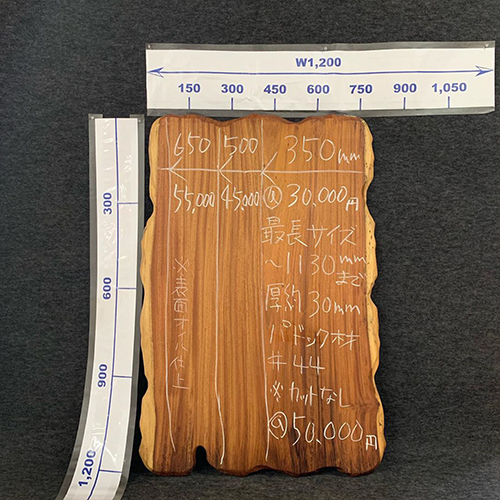 W1,200
150 300 450 600 750 900 1,050
300
600
900
1,200
650 500 350mm
55,000 45,000 @ 30,000円
最長サイズ
~1130mmまで
厚約30mm
パドック材
#44
※カットなし
@50,000円
※表面オイル仕上